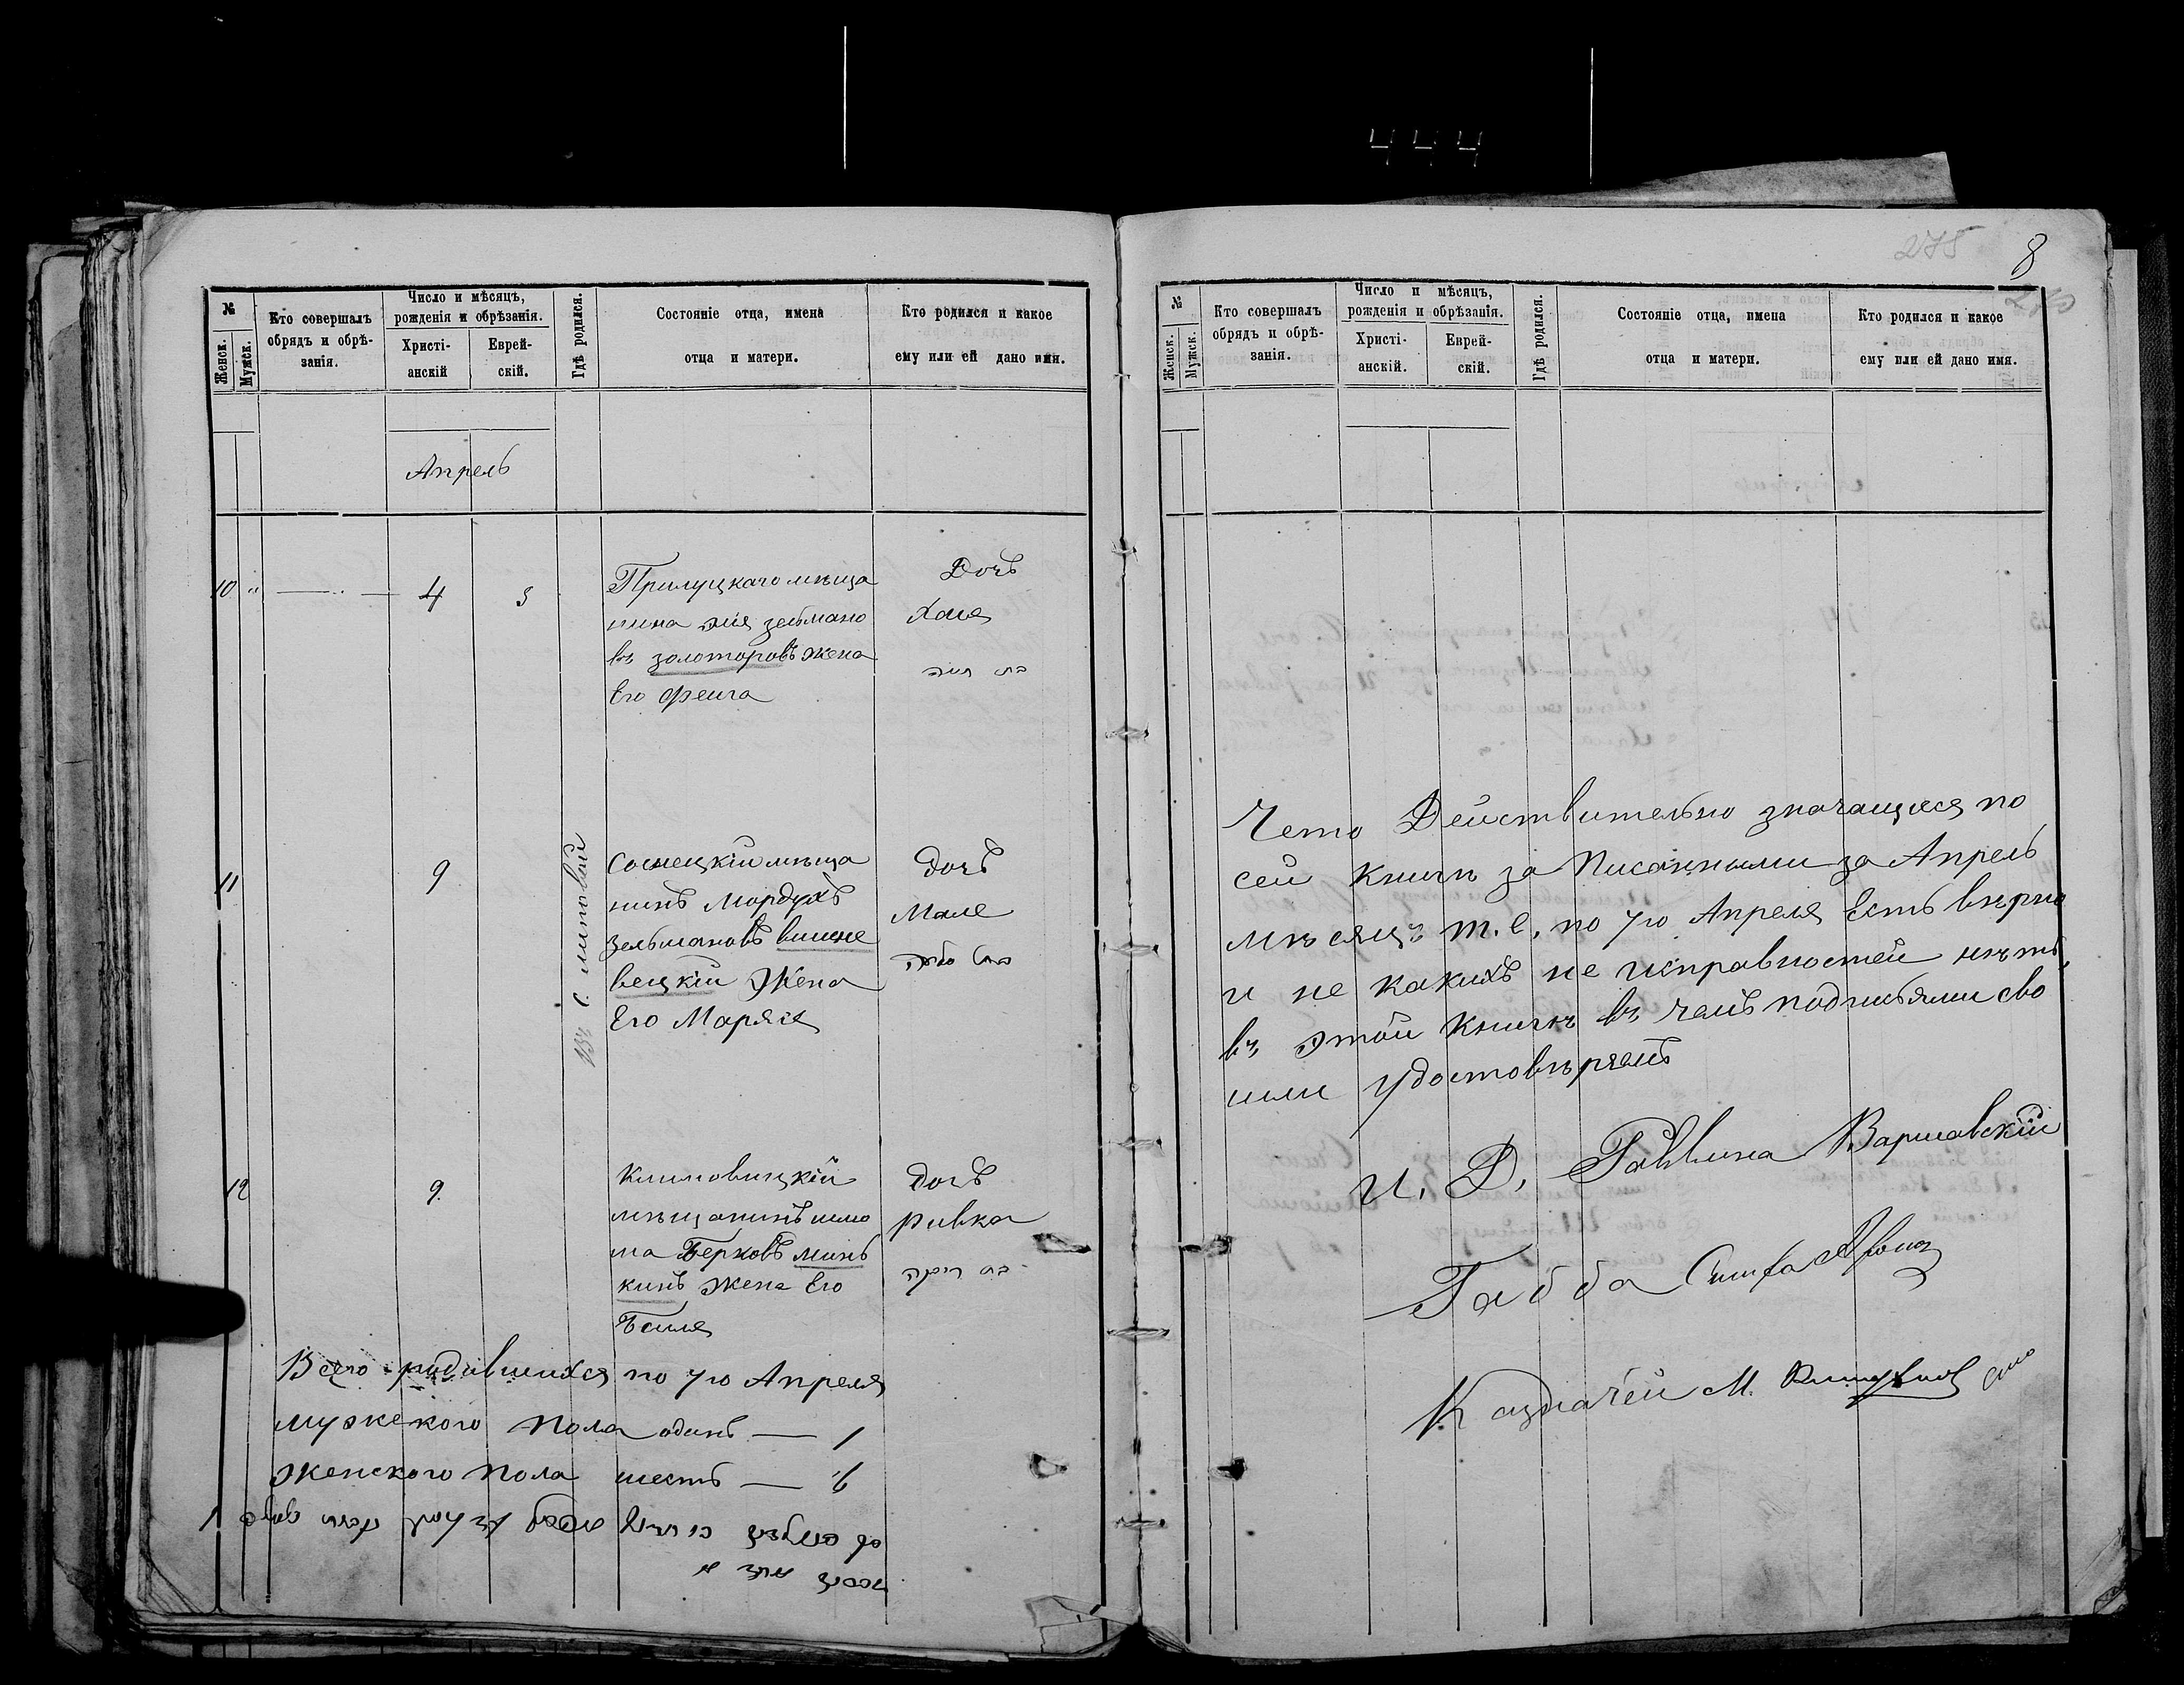 444
№
Женск.
Мужск.
Кто совершалъ
обрядъ и обрѣ-
занія.
Число и мѣсяцъ,
рожденія и обрѣзанія.
Христі-
анскій
Еврей-
скій.
Гдѣ родился.
Состояніе отца, имена
отца и матери.
Кто родился и какое
ему или ей дано имя.
Апрель
10 " — " — 4 5
Прилуцкаго мѣща
нина Эліа Зельмано
въ Золоторовъ жена
Его Фейга
Дочь
Хая
בת חיה
Въ с. литовой
11 9
мѣща
нинъ Мордухъ
Зельмановъ вишне
вецкій Жена
Его Маряся
дочь
Мале
12 9.
Климовицкій
мѣщанинъ шлио
ма Берковъ минь
кинъ жена Его
Бейля
дочь
ривка
בת ריבקה
Всего родившихся по 7го Апреля
мужскего Пола одинъ — 1
Женского Пола шесть — 6
275
8
№
Женск.
Мужск.
Кто совершалъ
обрядъ и обрѣ-
занія.
Число и мѣсяцъ,
рожденія и обрѣзанія.
Христі-
анскій.
Еврей-
скій.
Гдѣ родился.
Состояніе отца, имена
отца и матери.
Кто родился и какое
ему или ей дано имя.
Чето Действительно значащуюся по
сей книги за Писанными за Апрель
мѣсяцъ т.е. по 7го Апреля Есть вѣрно
и не какихъ не исправностей нѣтъ,
въ этой книгѣ въ чемъ подписями сво
ими удостовѣряемъ
И. Д. Раввина Варшавскій
Габба
Казначей М.